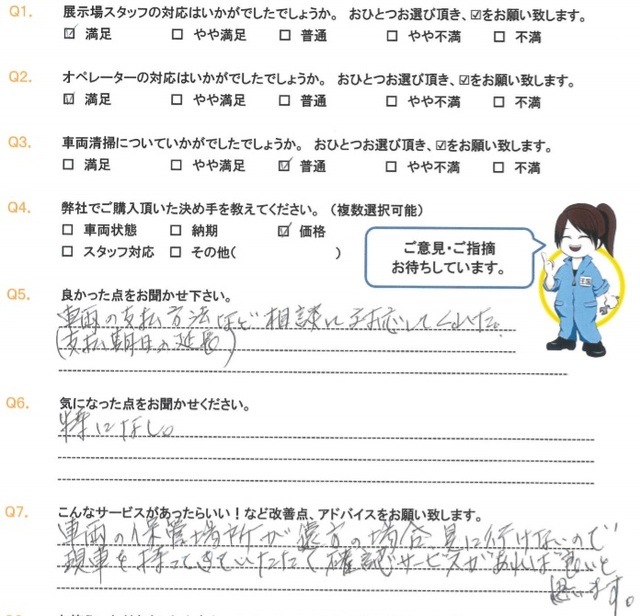 Q1. 展示場スタッフの対応はいかがでしたでしょうか。 おひとつお選び頂き、☑をお願い致します。
☑ 満足 □ やや満足 □ 普通 □ やや不満 □ 不満
Q2. オペレーターの対応はいかがでしたでしょうか。 おひとつお選び頂き、☑をお願い致します。
☑ 満足 □ やや満足 □ 普通 □ やや不満 □ 不満
Q3. 車両清掃についていかがでしたでしょうか。 おひとつお選び頂き、☑をお願い致します。
□ 満足 □ やや満足 ☑ 普通 □ やや不満 □ 不満
Q4. 弊社でご購入頂いた決め手を教えてください。（複数選択可能）
□ 車両状態 □ 納期 ☑ 価格
□ スタッフ対応 □ その他( )
ご意見・ご指摘
お待ちしています。
Q5. 良かった点をお聞かせ下さい。
車両の支払方法など相談に対応してくれた。
(支払期日の延長)
Q6. 気になった点をお聞かせください。
特になし。
Q7. こんなサービスがあったらいい！など改善点、アドバイスをお願い致します。
車両の保管場所が遠方の場合見に行けないので
現車を持ってきていただく確認サービスがあれば良いと
思います。